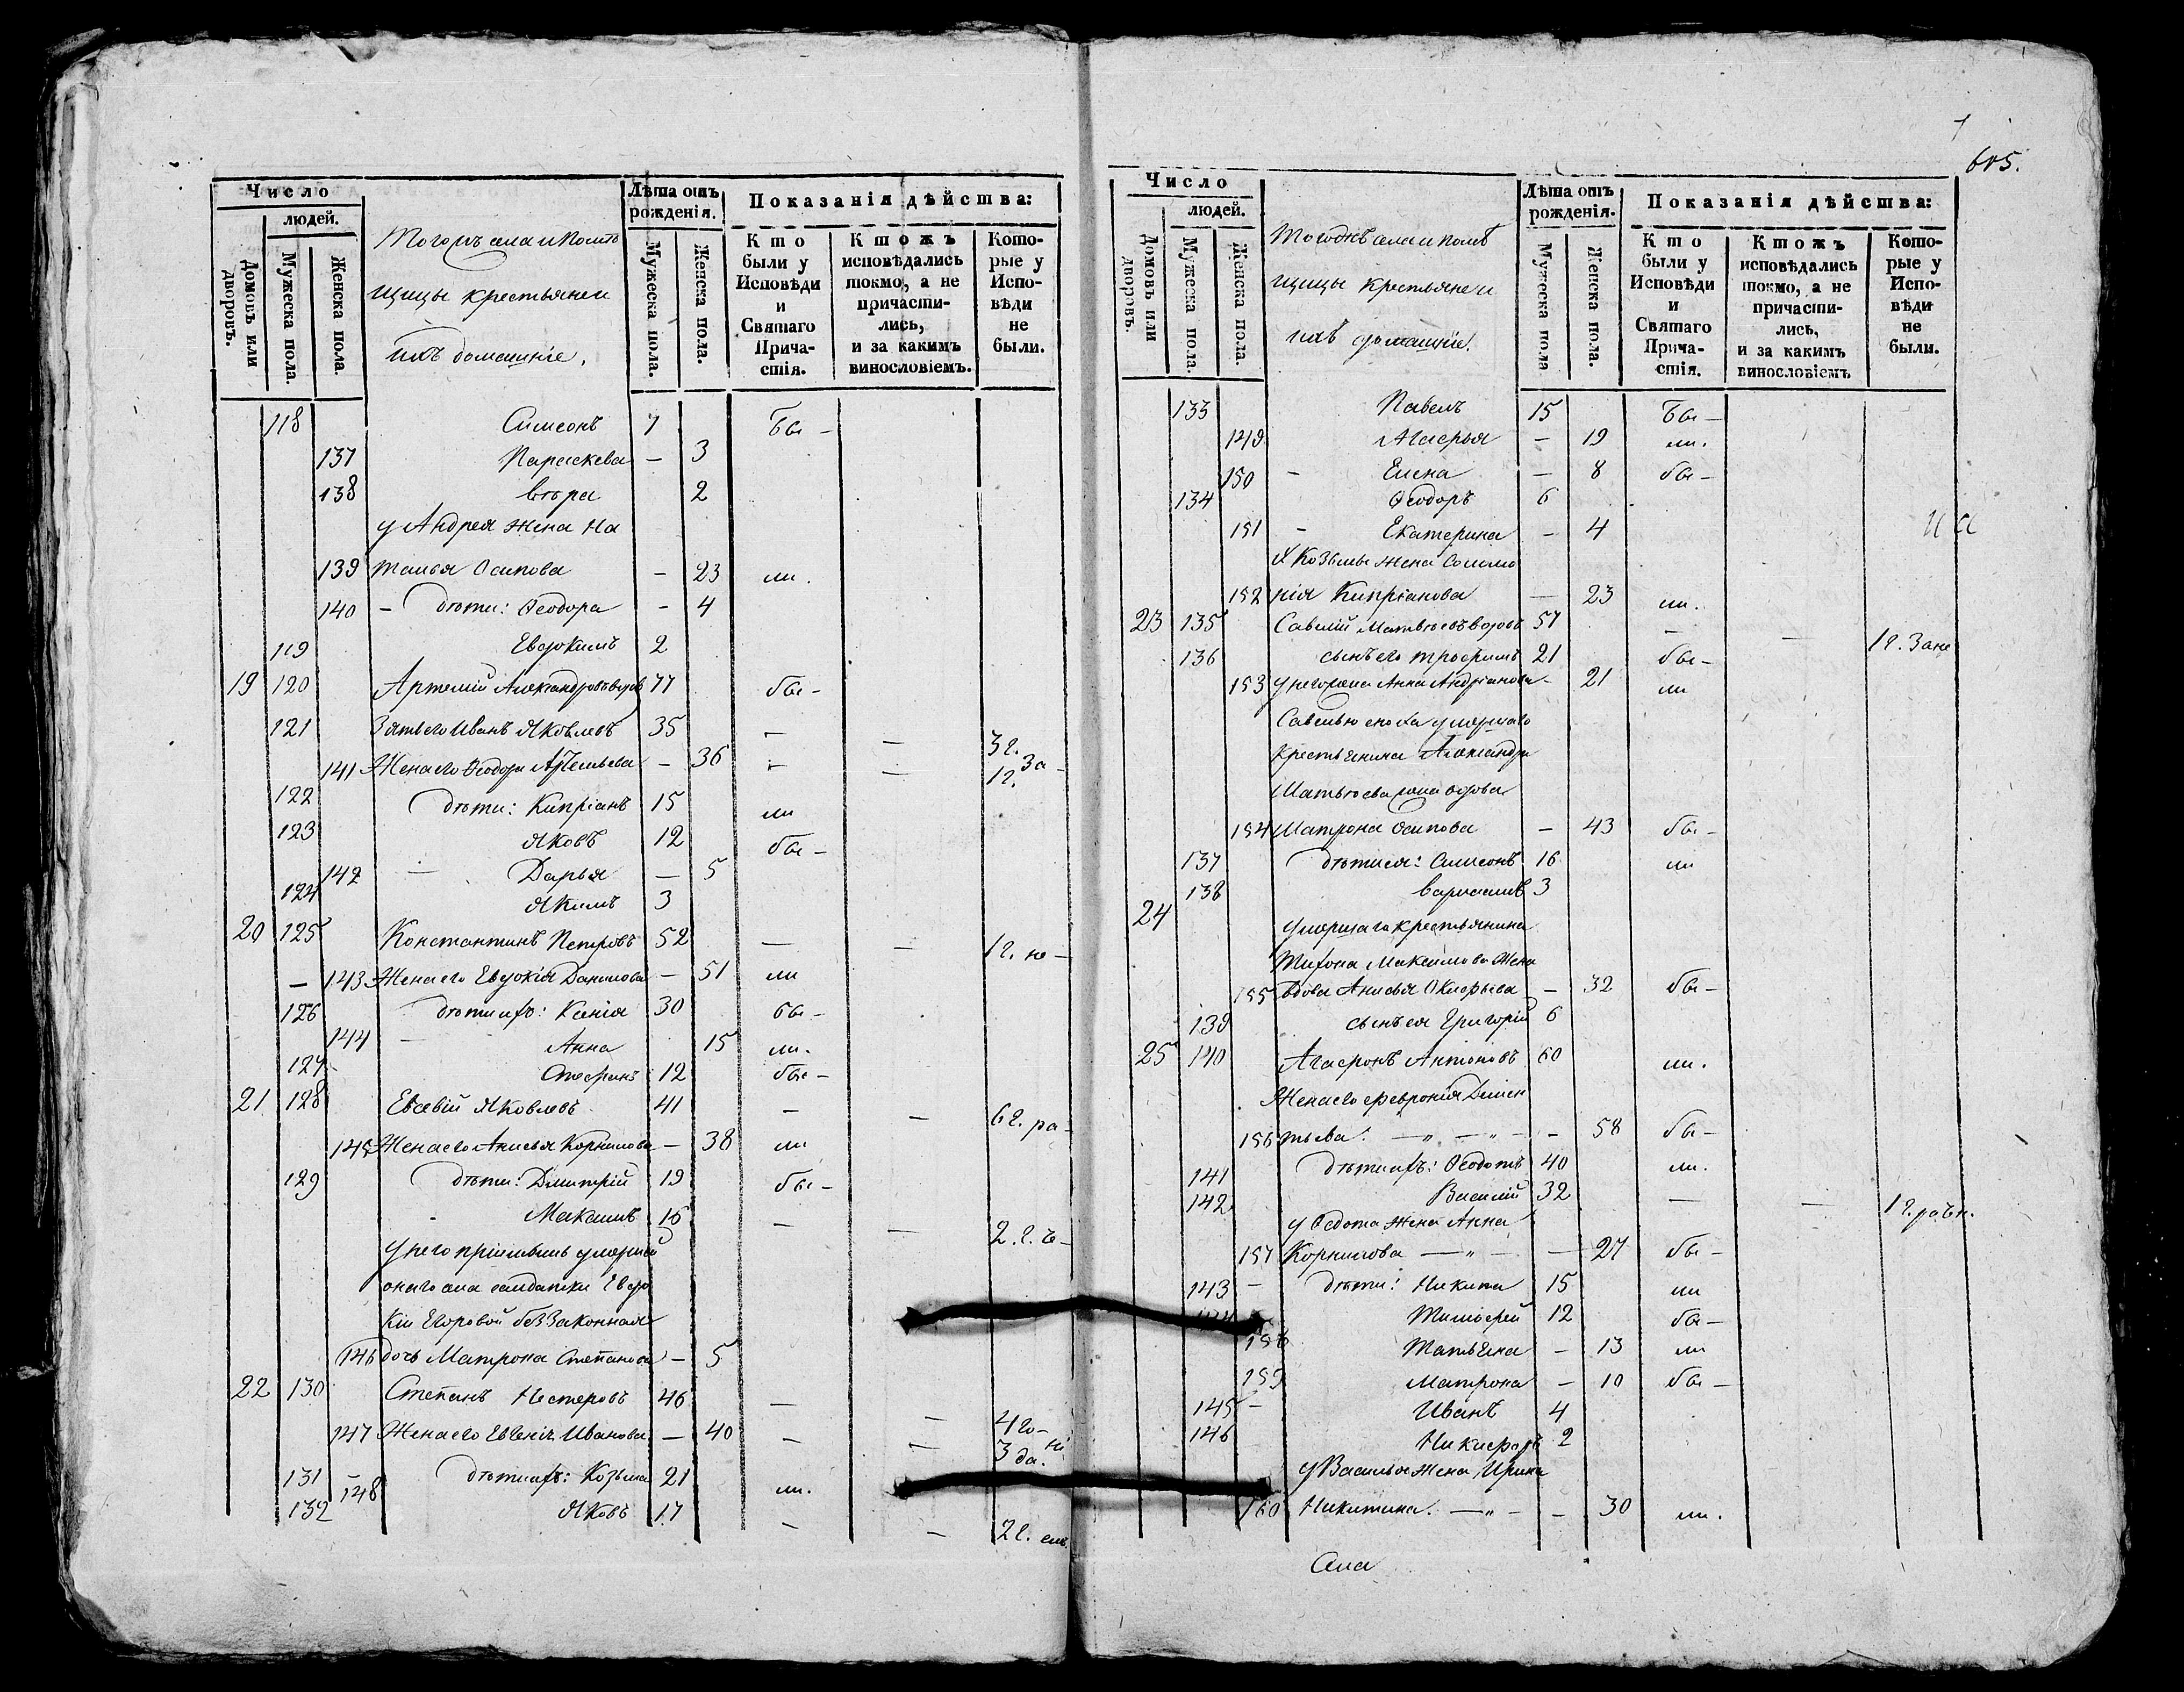 Число
людей.
Домовъ или дворовъ.
Мужеска пола.
Женска пола.
Тогожъ села и помѣ
щицы крестьяне и
ихъ домашніе.
Лѣта отъ рожденія.
Мужеска пола.
Женска пола.
Показанія дѣйства:
Кто были у Исповѣди и Святаго Прича-стія.
Ктожъ исповѣдались токмо, а не причасти-лись, и за какимъ винословіемъ.
Кото-рые у Испо-вѣди не были.
118 Симеонъ 7 бы-
137 Параскева - 3
138 Вѣра 2
у Андрея жена На
139 талья Осипова - 23 ли.
140 - дѣти: Ѳеодора - 4
119 Евдокимъ 2
19 120 Артемій Александровъ вдовъ 77 бы-
121 Зять его Иванъ Яковлевъ 35 - - 3 г.
141 Жена его Ѳеодора Артемьева - 36 - - 1 г. За-
122 дѣти: Кипріанъ 15 ли
123 Яковъ 12 бы-
142 - Дарья - 5
124 Якимъ 3
20 125 Константинъ Петровъ 52 - - 1 г. не-
- 143 Жена его Евдокія Данилова - 51 ли
126 дѣти ихъ: 30 бы-
144 - Анна 15 ли.
127 Стефанъ 12 бы-
21 128 Евсевій Яковлевъ 41 - - 6 г. ра-
145 Жена его Анисья Корнилова - 38 ли
129 дѣти: Димитрій 19 бы-
Максимъ 15 - - 2. г. ъ-
у него пріемышъ умершей
онаго села солдатки Евдо
кіи Егоровой беззаконная
146 дочь Матрона Степанова - 5
22 130 Степанъ Нестеровъ 46 - - 4 го-
147 Жена его Евгенія Иванова - 40 - - 3 да. Ні
131 - 148 дѣти ихъ: Козьма 21 ли.
132 Яковъ 17 - - 2 г.
605.
Число
людей.
Домовъ или дворовъ.
Мужеска пола.
Женска пола.
Тогожъ села и помѣ
щицы крестьяне и
ихъ домашніе.
Лѣта отъ рожденія.
Мужеска пола
Женска пола.
Показанія дѣйства:
Кто были у Исповѣди и Святаго Прича-стія.
Ктожъ исповѣдались токмо, а не причасти-лись, и за какимъ винословіемъ
Кото-рые у Испо-вѣди не были.
133 Павелъ 15 Бы-
149 Агафья - 19 ли.
150 - Елена - 8 бы-
134 Ѳеодоръ 6
151 - Екатерина - 4
У Козьмы жена Соломо
152 нія Кипріанова - 23 ли.
23 135 Савелій Матвѣевъ вдовъ 57 - - 1 г. Зане
136 сынъ его Трофимъ 21 бы-
153 у него жена Анна Андріанова - 21 ли
Савелью сноха умершаго
крестьянина Александра
Матвѣева жена вдова
154 Матрона Осипова - 43 бы-
137 дѣти ея: Симеонъ 16 ли
138 Варлаамъ 3
24 умершаго крестьянина
Тихона Максимова жена
155 вдова Анисья - 32 бы-
139 сынъ ея Григорій 6
25 140 Агафонъ Антоновъ 60 ли.
Жена его Февронія Демен
156 тьева. - „ - „ - - 58 бы-
141 дѣти ихъ: Ѳеодотъ 40 ли.
142 Василій 32 - - 1 г.
у Ѳедота жена Анна
157 Корнилова - „ - - 27 бы-
143 - дѣти: Никита 15 ли
144 Тимофей 12 бы-
158 Татьяна - 13 ли
159 Матрона - 10 бы-
145 - Иванъ 4
146 Никифоръ 2
у Василья жена Ирина
160 Никитина. - „ - - 30 ли.
Села